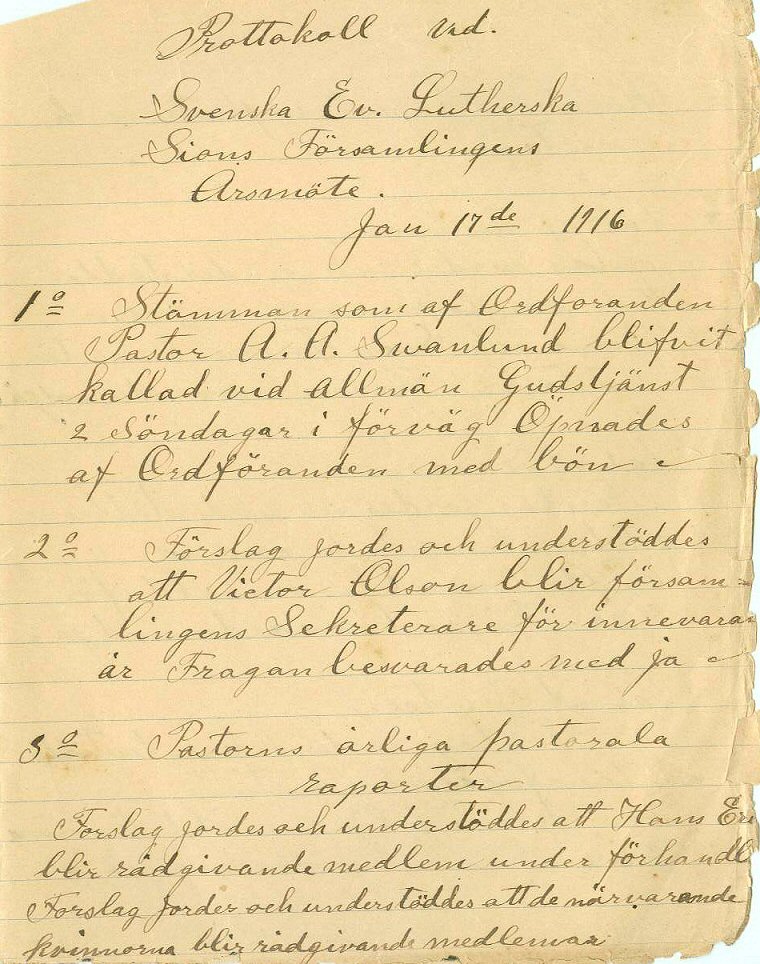 Prottokoll vid.
Svenska Ev. Lutherska
Sions Församlingens
Arsmöte.
Jan 17de 1916
1o Stämman som af Ordforanden
Pastor A. A. Swanlund blifvit
kallad vid allmän Gudstjänst
2 Söndagar i förväg Öpnades
af Ordföranden med bön
2o Förslag jordes och understöddes
att Victor Olson blir försam=
lingens Sekreterare för innevaran
år Fragan besvarades med ja
3o Pastorns årliga pastorala
raporter
Forslag jordes och understöddes att Hans
blir rådgivande medlem under förhandl
Forslag jordes och understöddes att de närvarande
kvinnorna blir rådgivande medlemar